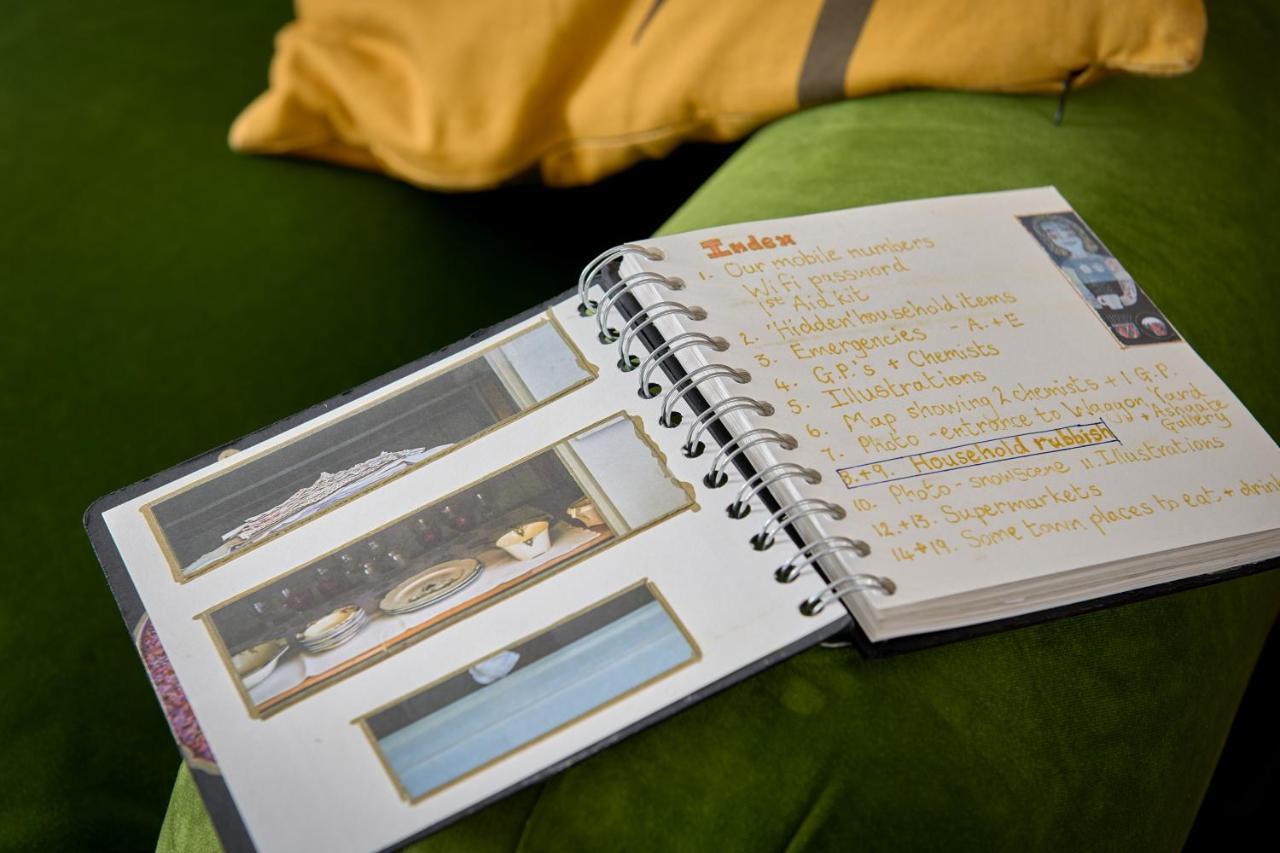 Index
1. Our mobile numbers
WiFi password
1st Aid kit
2. 'Hidden' household items
3. Emergencies - A.+E
4. G.P.'s + Chemists
5. Illustrations
6. Map showing 2 chemists + 1 G.P.
7. Photo - entrance to Waggon Yard
+ Ashgate
Gallery
8.+9. Household rubbish
10. Photo - snowscene 11. Illustrations
12.+13. Supermarkets
14+19. Some town places to eat + drink